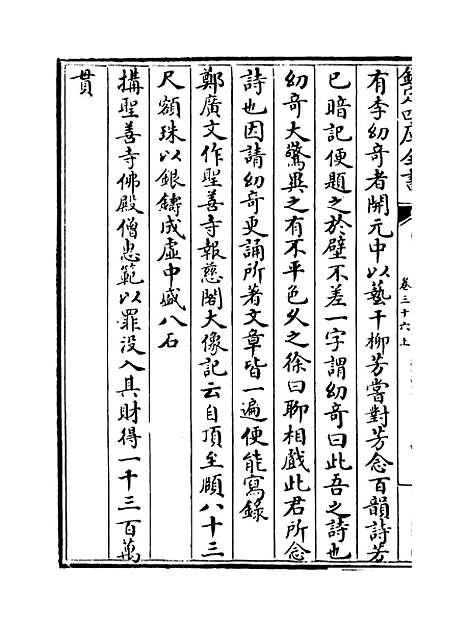 欽定四庫全書
卷三十六上
有李幼奇者開元中以藝干柳芳嘗對芳念百韻詩芳
已暗記便題之於壁不差一字謂幼奇曰此吾之詩也
幼奇大驚異之有不平色久之徐曰聊相戲此君所念
詩也因請幼奇更誦所著文章皆一遍便能寫錄
鄭廣文作聖善寺報慈閣大像記云自頂至頤八十三
尺額珠以銀鑄成虛中盛八石
搆聖善寺佛殿僧惠範以罪没入其財得一千三百萬
貫